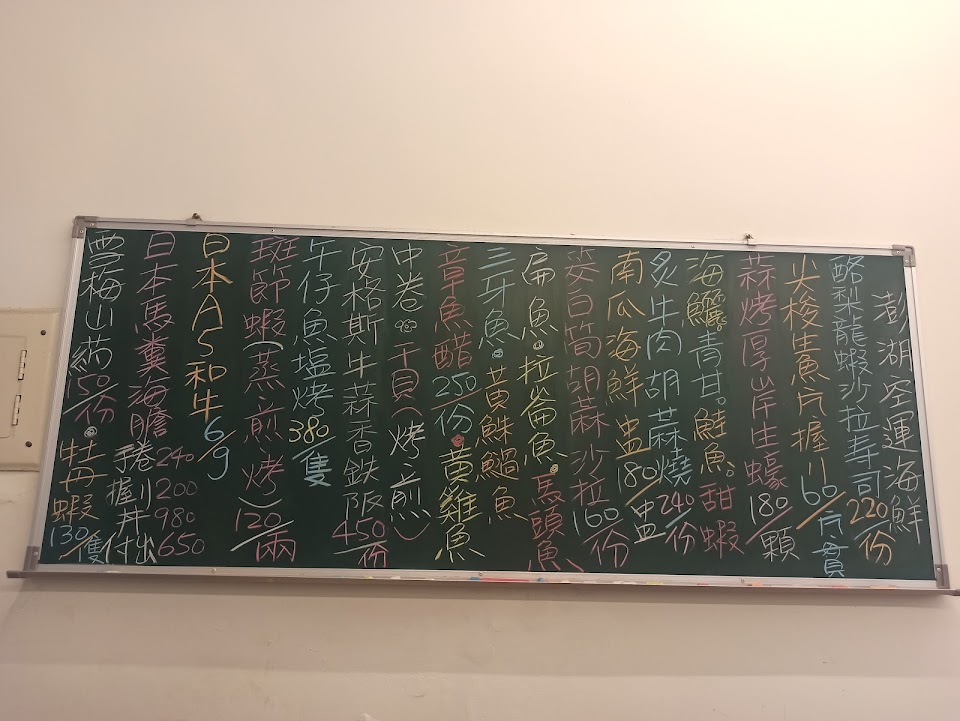 澎湖空運海鮮
酪梨龍蝦沙拉壽司220/份
尖梭生魚片握川60/片貫
蒜烤厚岸生蠔180/顆
海鱺。青甘。鮭魚。甜蝦
炙牛肉胡蔴燒240/份
南瓜海鮮盅180/盅
茭白筍胡蔴沙拉160/份
扁魚。拉崙魚。馬頭魚
三牙魚。黃鮢鰡魚
章魚醋250/份。黃雞魚
中卷。干貝(烤.煎)
安格斯牛蒜香鉄阪450/份
午仔魚塩烤380/隻
斑節蝦(蒸.煎.烤)120/兩
日本A5和牛6/9
日本馬糞海膽
手卷240
握川200
丼980
付出650
雪梅山藥150/份。牡丹蝦130/隻